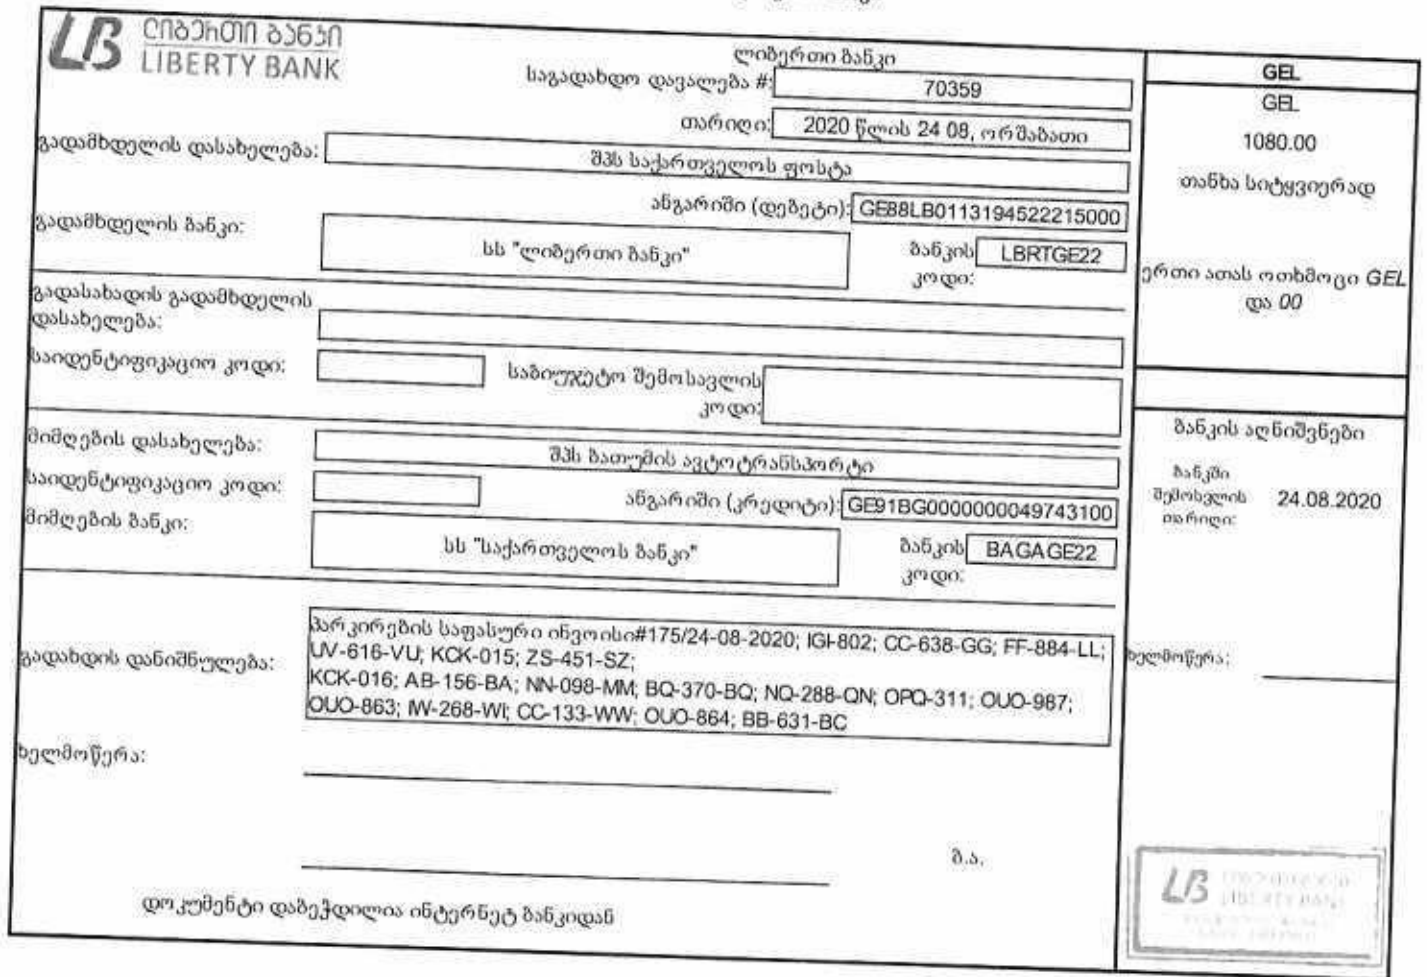 ლიბერთი ბანკი
LIBERTY BANK
ლიბერთი ბანკი
საგადახდო დავალება #: 70359
თარიღი: 2020 წლის 24 08, ორშაბათი
გადამხდელის დასახელება: შპს საქართველოს ფოსტა
ანგარიში (დებეტი): GE88LB0113194522215000
გადამხდელის ბანკი: სს "ლიბერთი ბანკი" ბანკის კოდი: LBRTGE22
გადასახადის გადამხდელის
დასახელება:
საიდენტიფიკაციო კოდი: საბიუჯეტო შემოსავლის
კოდი:
მიმღების დასახელება: შპს ბათუმის ავტოტრანსპორტი
საიდენტიფიკაციო კოდი: ანგარიში (კრედიტი): GE91BG0000000049743100
მიმღების ბანკი: სს "საქართველოს ბანკი" ბანკის კოდი: BAGAGE22
გადახდის დანიშნულება:
პარკირების საფასური ინვოისი#175/24-08-2020; IGI-802; CC-638-GG; FF-884-LL;
UV-616-VU; KCK-015; ZS-451-SZ;
KCK-016; AB-156-BA; NN-098-MM; BQ-370-BQ; NQ-288-QN; OPQ-311; OUO-987;
OUO-863; IW-268-WI; CC-133-WW; OUO-864; BB-631-BC
ხელმოწერა:
ბ.ა.
დოკუმენტი დაბეჭდილია ინტერნეტ ბანკიდან
GEL
GEL
1080.00
თანხა სიტყვიერად
ერთი ათას ოთხმოცი GEL
და 00
ბანკის აღნიშვნები
ბანკში
შემოსვლის 24.08.2020
თარიღი:
ხელმოწერა:
LB
LIBERTY BANK